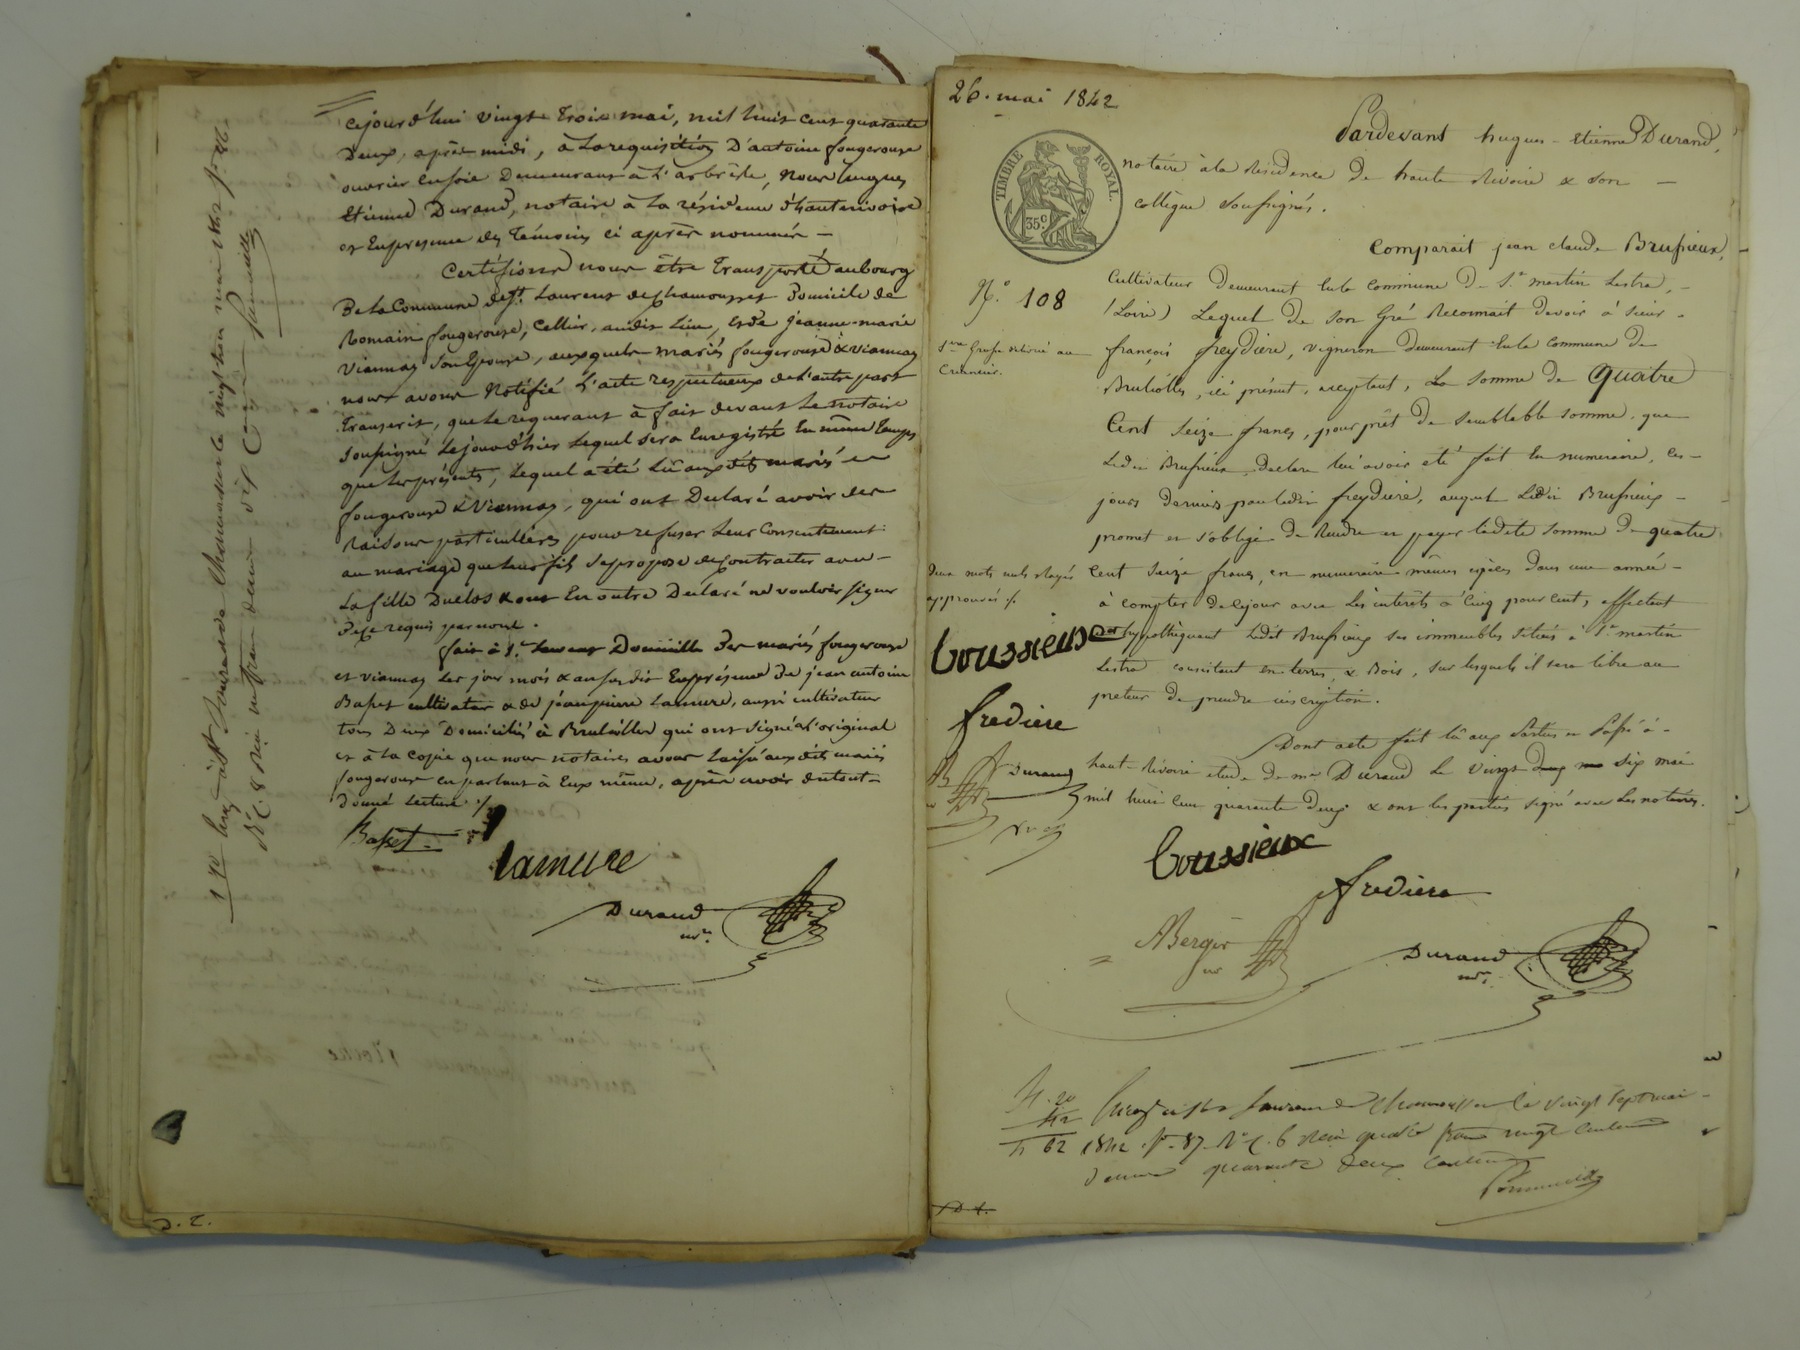 Cejourd'hui vingt trois mai, mil huit cent quarante
Deux, après midi, à La requisition D'antoine fougerouse
ouvrier en soie Demeurant à L'arbresle, Nous hugues
Etienne Durand, notaire à La résidence d'hauterivoire
et En presence des Temoins ci après nommés —
Certifions nous être Transporté au bourg
De La Commune de St. Laurent de Chamousset Domicile de
Romain fougerouse, Cellier, audit Lieu, Et de Jeanne-marie
Viannay Son Epouse, auxquels mariés fougerouse & viannay
nous avons Notifié L'acte respectueux de L'autre part
Transcrit, que Le requerant à fait devant Le notaire
Soussigné Le jour d'hier Lequel sera Enregistré En même Temps
que Les présents, Lequel a été Lû aux dits mariés
fougerouse & Viannay, qui ont Declaré avoir des
Raisons particulières pour refuser Leur Consentement
au mariage que Leur fils Se propose de Contracter avec —
La fille Duclos & ont En outre Declaré ne vouloir Signer
De ce requis par nous.
fait à St. Laurent Domicille Des mariés fougerouse
et viannay Les jour mois & an susdits En présence De jean antoine
Basset cultivateur & de jean pierre Lamure, aussi cultivateur
tous Deux Domiciliés à Brulailles qui ont Signé à L'original
et à La copie que nous notaires avons Laissé aux dits mariés
fougerouse en parlant à Eux même, après avoir du tout —
donné Lecture ./.
Basset
Lamure
Durand
nre.
D. 2.
26. mai 1842
TIMBRE ROYAL.
35 c.
Pardevant hugues-etienne Durand,
notaire à la Résidence De haute Rivoire & son —
collègue Soussignés.
Comparait jean claude Brussieux,
N.° 108
Cultivateur Demeurant En la commune De St. martin Lestra, —
(Loire) Lequel De Son Gré Reconnait Devoir à Sieur
1ère Grosse délivrée au
Créancier.
françois freydière, vigneron demeurant En la commune De
Brullioles, ici présent, acceptant, La Somme De Quatre
Cent Seize francs, pour prêt De Semblable Somme que
Ledit Brussieux, Declare lui avoir été fait En numeraire, Ces —
jours derniers par Ledit freydiere, auquel Ledit Brussieux —
promet et s'oblige De Rendre et payer ladite Somme De quatre
Deux mots nuls rayés
approuvés ./.
Cent Seize francs, en numeraire mêmes espèces Dans une année —
à compter De Ce jour avec Les intérêts à Cinq pour cent, affectant
Boussieux
et hypothéquant Ledit Brussieux Ses immeubles Situés à St. martin
Lestra consistant en terres, & Bois, Sur lesquels il sera libre au
preteur De prendre inscription.
frediere
Dont acte fait lû aux Parties & Passé à —
Durand
haute-Rivoire étude de me. Durand Le vingt six mai
mil huit cent quarante Deux & ont les parties signé avec Les notaires.
Boussieux
frediere
Berger
nre
Durand
nre.
4. 20
42
4 62
Enregistré à St. Laurent de Chamousset le vingt sept mai
1842. fo. 87. Vo. C. 6 Reçu quatre francs vingt Centimes
decime quarante deux Centimes